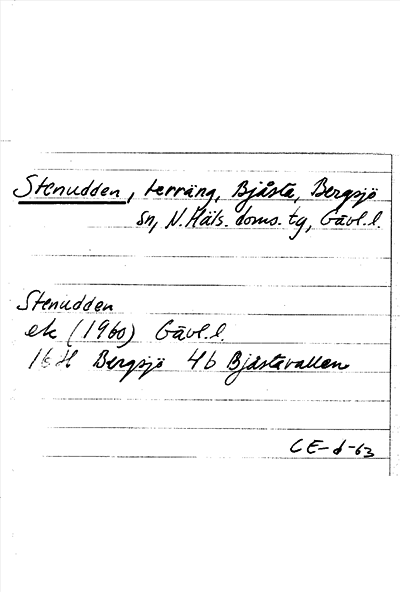 Stenudden, terräng, Bjåsta, Bergsjö
sn, N. Häls. doms. tg, Gävl. l.
Stenudden
ek (1960) Gävl. l.
16 H Bergsjö 4b Bjåstavallen
CE-d-63